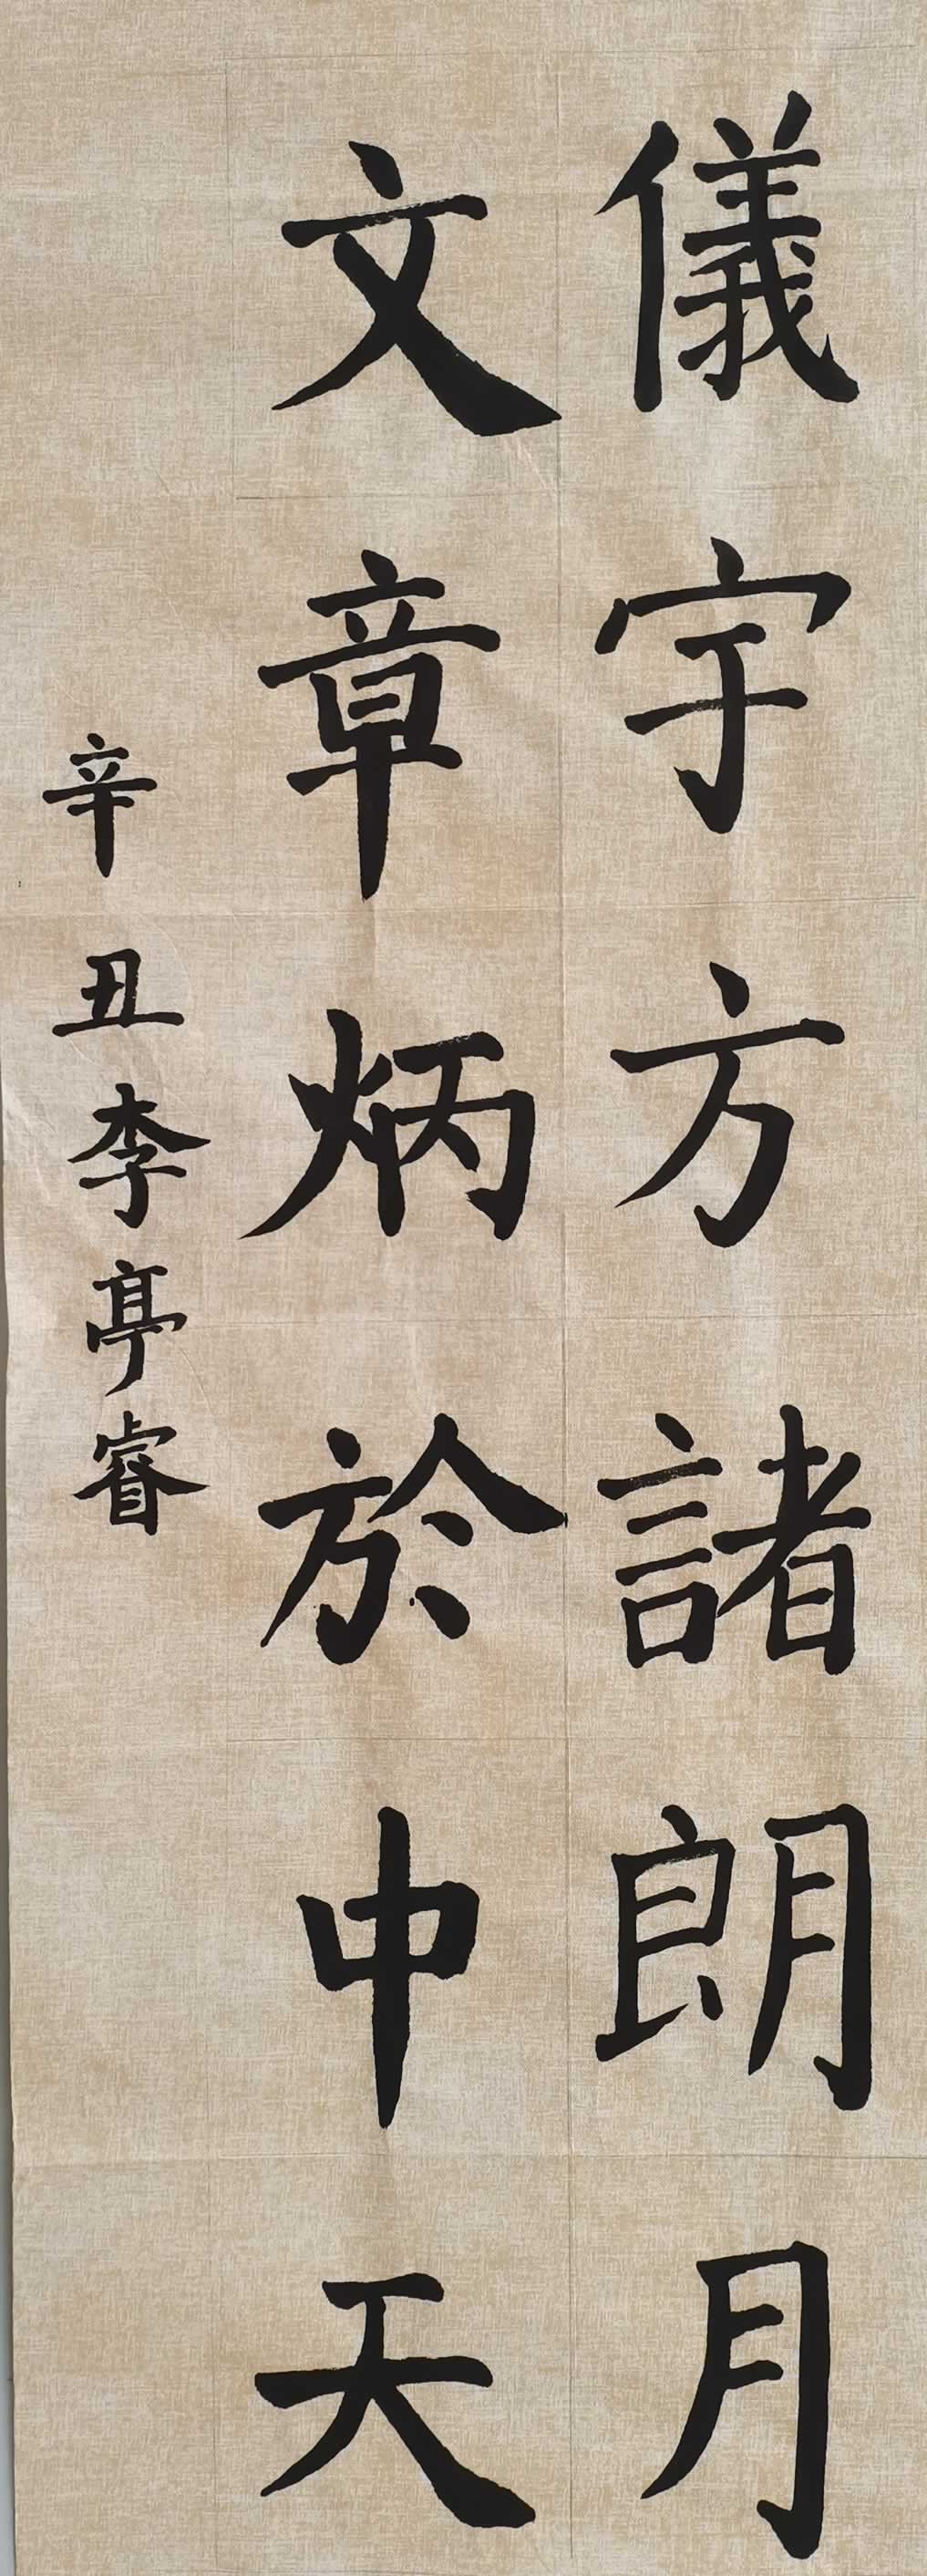 儀宇方諸朗月
文章炳於中天
辛丑李亭睿